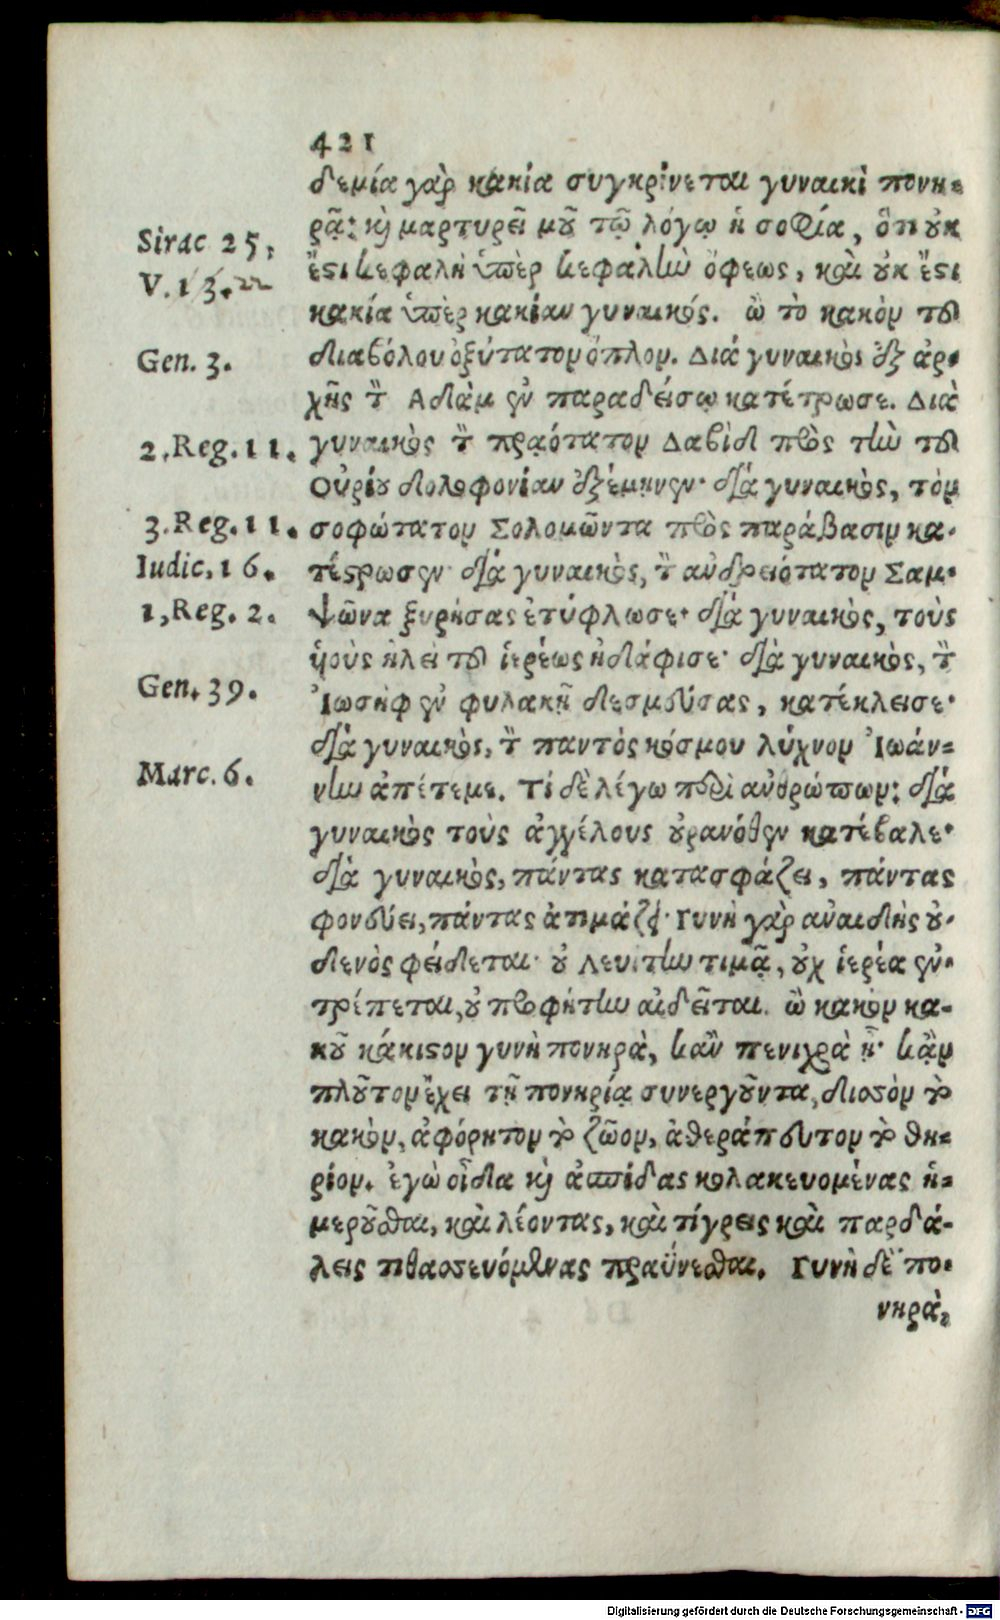 421
δεμία γὰρ κακία συγκρίνεται γυναικὶ πονη-
ρᾷ: καὶ μαρτυρεῖ μοῦ τῷ λόγῳ ἡ σοφία, ὅτι οὐκ
Sirac 25,
ἔστι κεφαλὴ ὑπὲρ κεφαλὴν ὄφεως, καὶ οὐκ ἔστι
V. 13. 22
κακία ὑπὲρ κακίαν γυναικός. ὢ τὸ κακὸν τοῦ
Gen. 3.
διαβόλου ὀξύτατον ὅπλον. Διά γυναικὸς ἐξ ἀρ-
χῆς τὸν Ἀδὰμ ἐν παραδείσῳ κατέτρωσε. Διὰ
2. Reg. 11.
γυναικὸς τὸν πρᾳότατον Δαβὶδ πρὸς τὴν τοῦ
Οὐρίου δολοφονίαν ἐξέμηνεν· διὰ γυναικὸς, τὸν
3. Reg. 11.
σοφώτατον Σολομῶντα πρὸς παράβασιν κα-
Iudic. 16.
τέστρωσεν· διὰ γυναικὸς, τὸν ἀνδρειότατον Σαμ-
1, Reg. 2.
ψῶνα ξυρήσας ἐτύφλωσε· διὰ γυναικὸς, τοὺς
ὑιοὺς ἠλεὶ τοῦ ἱερέως ἠδάφισε· διὰ γυναικὸς, τὸν
Gen. 39.
Ἰωσὴφ ἐν φυλακῇ δεσμεύσας, κατέκλεισε·
διὰ γυναικὸς, τὸν παντὸς κόσμου λύχνον Ἰωάν-
Marc. 6.
νην ἀπέτεμε. Τί δὲ λέγω περὶ ἀνθρώπων; διὰ
γυναικὸς τοὺς ἀγγέλους οὐρανόθεν κατέβαλε·
διὰ γυναικὸς, πάντας κατασφάζει, πάντας
φονεύει, πάντας ἀτιμάζει· Γυνὴ γὰρ ἀναιδὴς οὐ-
δενὸς φείδεται· οὐ Λευίτην τιμᾷ, οὐχ ἱερέα ἐν-
τρέπεται, οὐ προφήτην αἰδεῖται. ὢ κακὸν κα-
κοῦ κάκιστον γυνὴ πονηρὰ, κἂν πενιχρὰ ᾖ· κἂν
πλοῦτον ἔχει τῇ πονηρίᾳ συνεργοῦντα, δισσὸν τὸ
κακὸν, ἀφόρητον τὸ ζῶον, ἀθεράπευτον τὸ θη-
ρίον. ἐγὼ οἶδα καὶ ἀσπίδας κολακευομένας ἡ-
μεροῦσθαι, καὶ λέοντας, καὶ τίγρεις καὶ παρδά-
λεις τιθασσευόμενας πραΰνεσθαι. Γυνὴ δὲ πο-
νηρὰ,
Digitalisierung gefördert durch die Deutsche Forschungsgemeinschaft - DFG